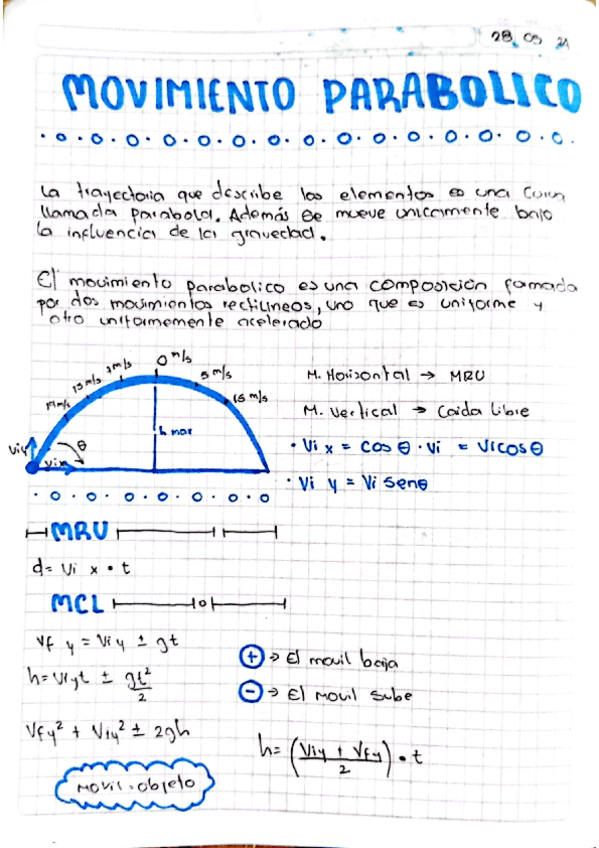 28 05 21
MOVIMIENTO PARABOLICO
La trayectoria que describe los elementos es una curva
llamada parabola. Además se mueve unicamente bajo
la influencia de la gravedad.
El movimiento parabolico es una composición formada
por dos movimientos rectilineos, uno que es uniforme y
otro uniformemente acelerado
0 m/s
5 m/s
15 m/s
h max
Viy
θ
Vix
M. Horizontal → MRU
M. Vertical → Caida libre
• Vi x = cos θ · Vi = Vi cos θ
• Vi y = Vi sen θ
MRU
d = Vi x • t
MCL
Vf y = Vi y ± gt
h = Viyt ± gt²/2
Vfy² + Viy² ± 2gh
+ → El movil baja
- → El movil sube
h = (Viy + Vfy / 2) • t
Movil = objeto